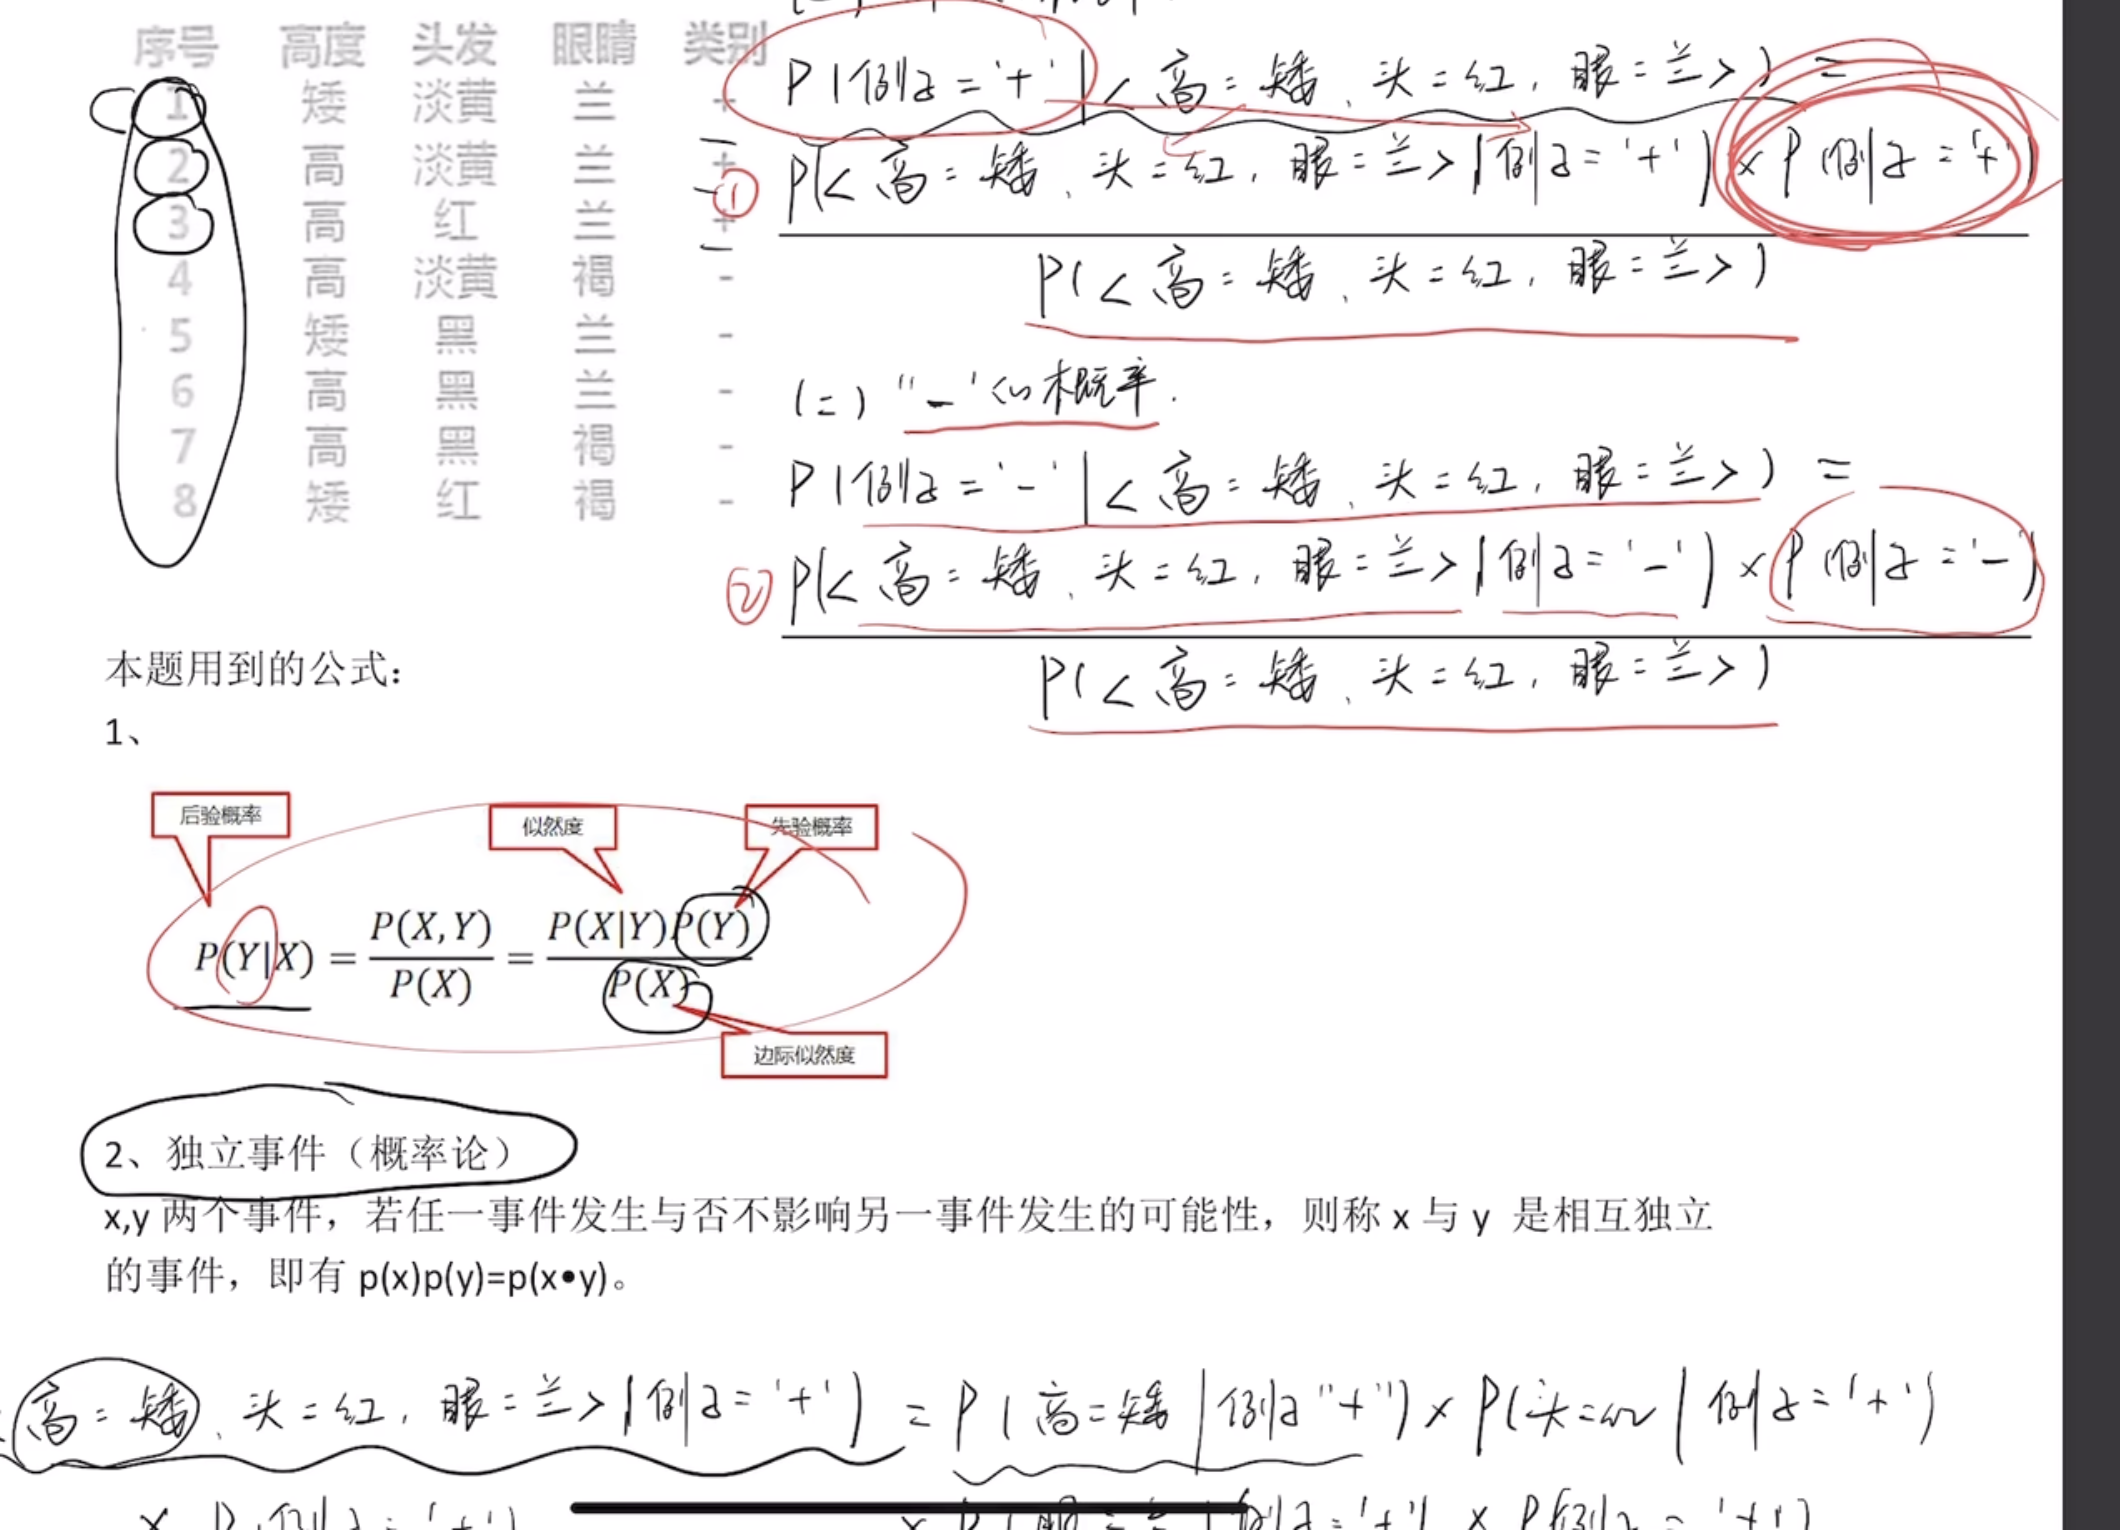 序号 高度 头发 眼睛 类别
1 矮 淡黄 兰 +
2 高 淡黄 兰 +
3 高 红 兰 +
4 高 淡黄 褐 -
5 矮 黑 兰 -
6 高 黑 兰 -
7 高 黑 褐 -
8 矮 红 褐 -
P(例子='+'|<高=矮、头=红,眼=兰>) =
① P(<高=矮、头=红,眼=兰>|例子='+') × P(例子='+')
P(<高=矮、头=红,眼=兰>)
(二) "-"的概率.
P(例子='-'|<高=矮、头=红,眼=兰>) =
② P(<高=矮、头=红,眼=兰>|例子='-') × P(例子='-')
P(<高=矮、头=红,眼=兰>)
本题用到的公式:
1、
后验概率 似然度 先验概率
P(Y|X) = P(X,Y) / P(X) = P(X|Y)P(Y) / P(X)
边际似然度
2、独立事件(概率论)
x,y 两个事件，若任一事件发生与否不影响另一事件发生的可能性，则称 x 与 y 是相互独立
的事件，即有 p(x)p(y)=p(x•y)。
高=矮、头=红,眼=兰>|例子='+') = P(高=矮|例子"+") × P(头=红|例子='+')
× P(例子='+') × P(眼=兰|例子='+') × P(例子='+')